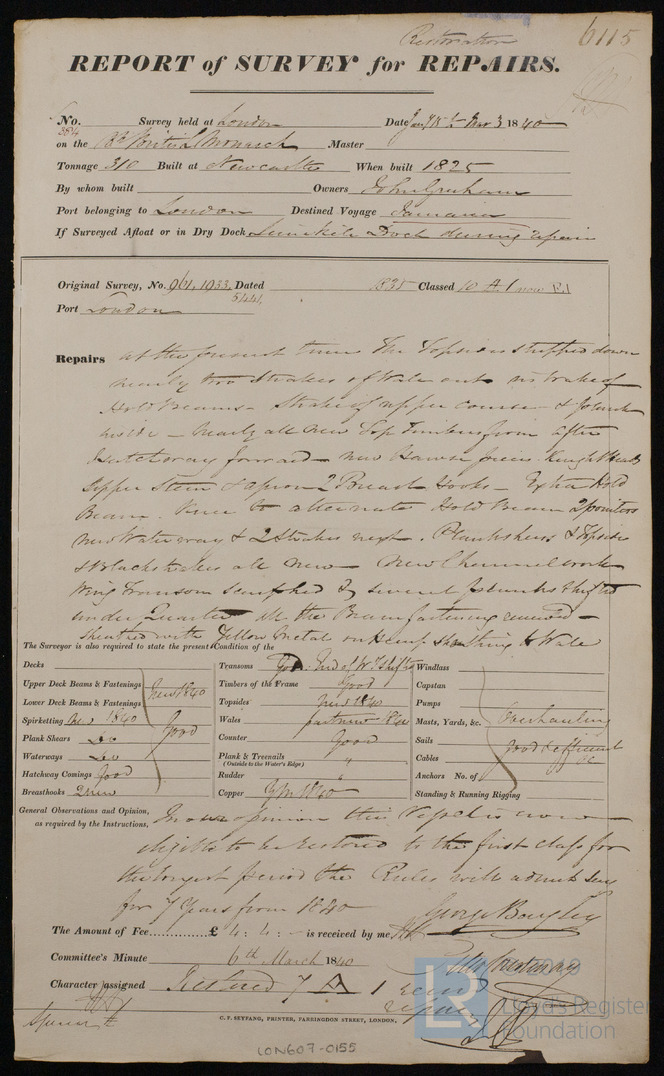 Restoration
6115
REPORT of SURVEY for REPAIRS.
No. 384 Survey held at London Date Jany 15 to Mar 3 1840
on the British Monarch Master
Tonnage 310 Built at Newcastle When built 1825
By whom built Owners John Graham
Port belonging to London Destined Voyage Jamaica
If Surveyed Afloat or in Dry Dock Limekiln Dock during repair
Original Survey, No. 961, 1033, 5441, Dated 1835 Classed 10 A 1 now
Port London
Repairs at the present time The Topsides stripped down
nearly two Strakes of Wale out
Hold Beams - Strake of upper course &
inside - nearly all new Top Timbers from after
Hatchway forward - new Hawse pieces Knight Heads
Upper Stem & apron 2 Breast Hooks - Extra Hold
Beam. Knee to alternate Hold Beam 2 pointers
new Waterway & 2 Strakes next. Planksheers & Topsides
& Blackstrakes all new - New Channel work
Wing Transom scarphed & several planks shifted
under Quarter all the Beam fastening renewed -
Sheathed with Yellow Metal on Hemp Sheathing to Wale
The Surveyor is also required to state the present Condition of the
Decks
Upper Deck Beams & Fastenings
Lower Deck Beams & Fastenings New 1840
Spirketting New 1840
Plank Shears Do
Waterways Do Good
Hatchway Comings Good
Breasthooks 2 new
Transoms Good End of W T shifted
Timbers of the Frame Good
Topsides New 1840
Wales part new 1840
Counter Good
Plank & Treenails "
(Outside to the Water's Edge)
Rudder "
Copper YM 1840
Windlass
Capstan
Pumps
Masts, Yards, &c. Overhauling
Sails
Cables Good & efficient
Anchors No. of
Standing & Running Rigging
General Observations and Opinion, In our opinion this Vessel is now
as required by the Instructions, eligible to be restored to the first class for
the longest period the Rules will admit say
for 7 Years from 1840
George Bayley
The Amount of Fee............... £ 4 : 4 : - is received by me,
Committee's Minute 6th March 1840
Character assigned Restored 7 A 1
C. F. SEYFANG, PRINTER, FARRINGDON STREET, LONDON.
LON607-0155
LR
2019
Lloyd's Register
Foundation